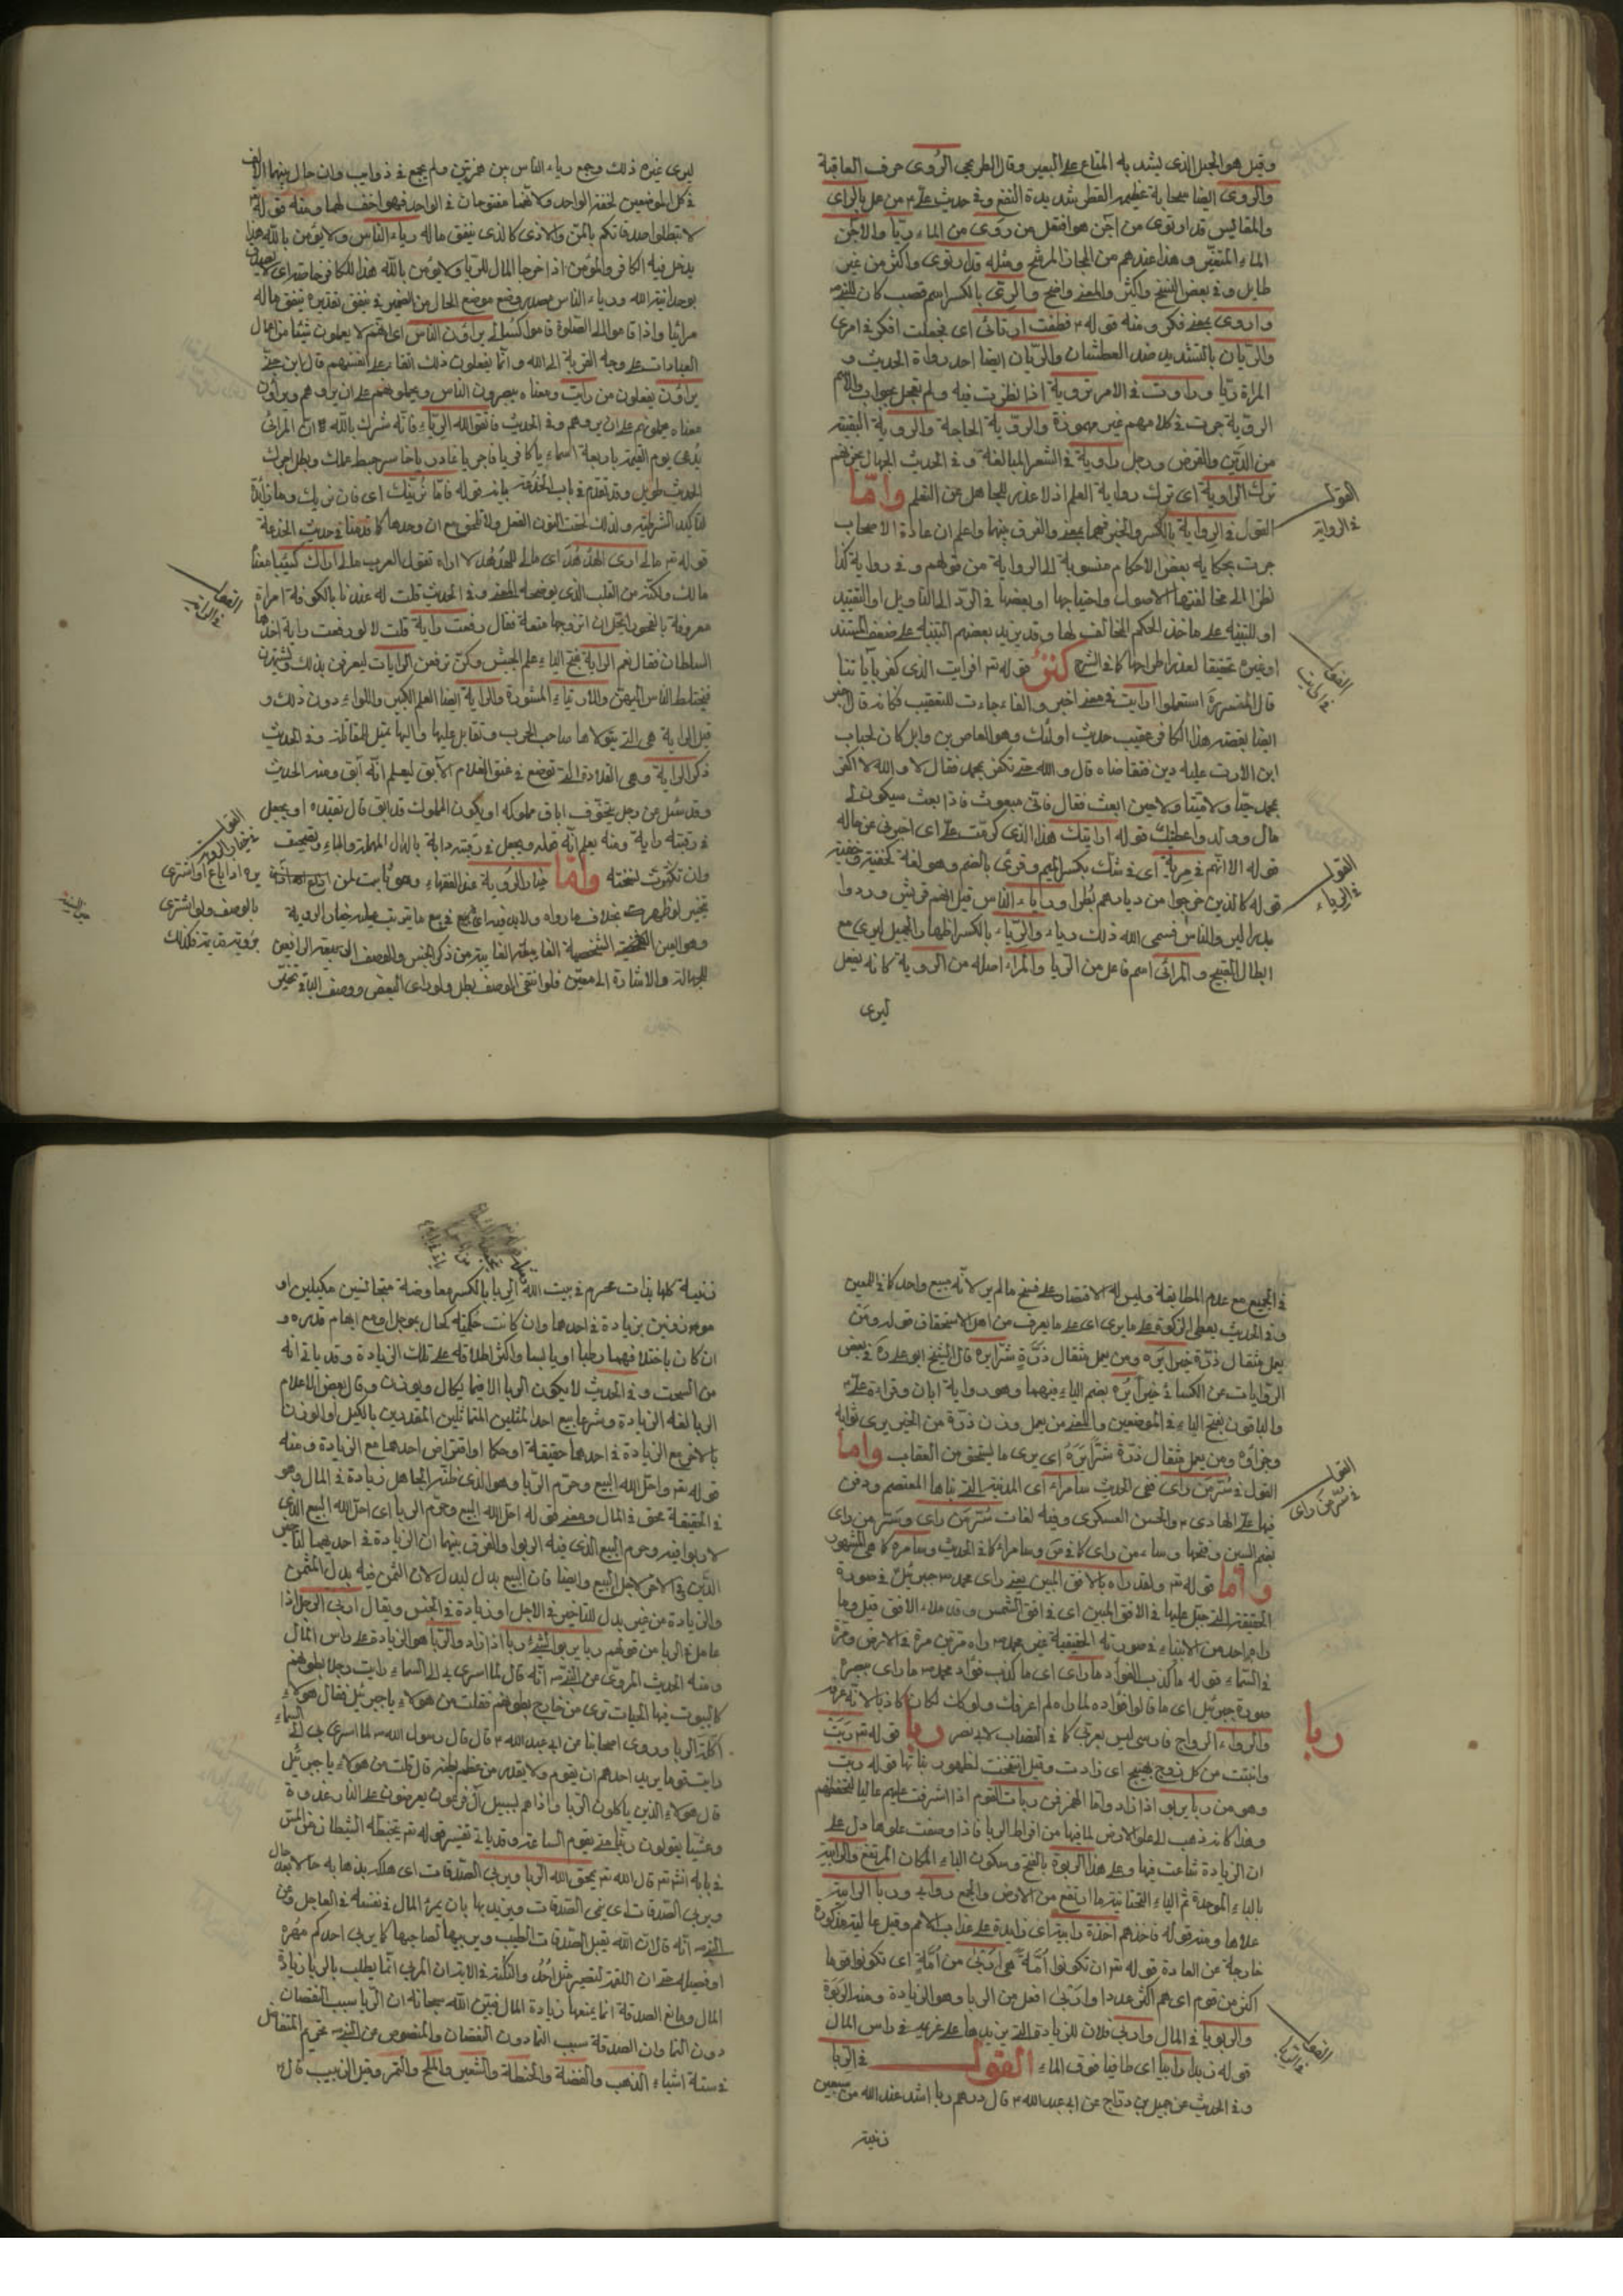 وقيل هو الحبل الذى يشد به المتاع على البعير وقال الطريحى الروى حرف العاقبة
والروى ايضا سحابة عظيمة القطر شديدة النفع وفى حديث على م من عمل بالراى
والمقاييس قد ارتوى من آجن هو افتعل من روى من الماء ريّا والآجن
الماء المتغيّر وهذا عندهم من المجاز المرشح ومثله قد ارتوى واكثر من غير
طايل وفى بعض النسخ واكثر والمعنى واضح والرىّ بالكسر اسم قصب كان للنبى ص
واروى بمعنى فكر ومنه قوله م فطفقت ارتائى اى فجعلت افكر فى امرى
والريّان بالتشديد ضد العطشان والريّان ايضا احد رواة الحديث و
المراة ريّا وروات فى الامر تروية اذا نظرت فيه ولم تعجل بجواب والاسم
الرويّة جرت فى كلامهم غير مهموزة والرويّة الحاجة والروية البقية
من الدين والقرض ورجل راوية فى الشعر للمبالغة وفى الحديث الجهال يحزنهم
ترك الراوية اى ترك رواية العلم اذ لا عذر للجاهل عن التعلم وامّا
القول فى الرواية بالكسر والخبر فهما بمعنى والفرق بينهما واعلم ان عادة الاصحاب
جرت بحكاية بعض الاحكام منسوبة الى الرواية من قولهم وفى رواية كذا
نظرا الى مخالفتها للاصول واحتياجها او بعضها فى الرد الى التاويل او التقييد
او للتنبيه على ماخذ الحكم المخالف لها وقد يزيد بعضهم التنبيه على ضعف السند
او غيره تحقيقا لعذر اطراحها كما فى الشرح قوله تعالى افرايت الذى كفر بآياتنا
قال المفسرون استعملوا ارايت فى معنى اخبر والفاء جاءت للتعقيب فكانه قال اخبر
ايضا بقصة هذا الكافر عقيب حديث اولئك وهو العاص بن وايل كان لخباب
ابن الارت عليه دين فتقاضاه قال لا والله حتى تكفر بمحمد فقال لا والله لا اكفر
بمحمد حيّا ولا ميّتا ولا حين ابعث فقال فانى مبعوث فاذا بعثت سيكون لى
مال وولد واعطيك قوله ارايتك هذا الذى كرمت علىّ اى اخبرنى عن حاله
قوله الا انّهم فى مرية اى فى شك بكسر الميم وقرئ بالضم وهو لغة كخفية وخفية
قوله كالذين خرجوا من ديارهم بطرا ورياء الناس قيل انهم قريش وردوا
بدرا ليرى الناس فسمى الله ذلك رياء والرياء بالكسر اظهار الجميل ليرى مع
ابطال القبيح والمرائى اسم فاعل من الريا والمراء اصله من الروية كانه يفعل
ليرى
القول
فى الرواية
القول
فى الرياء
ليرى غيره ذلك وجمع رياء الناس بين همزتين ولم يجمع فى ذوايب وان حال بينهما الالف
فى كل الموضعين لخفة الواحد ولانهما مفتوحان فى الواحد فهو اخف لهما ومنه قوله تعالى
لا تبطلوا صدقاتكم بالمن والاذى كالذى ينفق ماله رياء الناس ولا يؤمن بالله هنا
يدخل فيه الكافر والمؤمن اذا اخرجا المال للريا ولا يؤمن بالله هذا للكافر خاصة اى لا يصدق
بوحدانية الله ورياء الناس مصدر وضع موضع الحال من الضمير فى ينفق تقديره ينفق ماله
مرائيا واذا قاموا الى الصلوة قاموا كسالى يراؤن الناس اى انهم لا يعملون شيئا من اعمال
العبادات على وجه القربة الى الله وانما يفعلون ذلك ابقاء على انفسهم قال ابن جنى
يراؤن يفعلون من رايت ومعناه يبصرون الناس ويحملونهم على ان يروهم ويراؤن
معناه يحملونهم على ان يروهم وفى الحديث فاتقوا الله الرياء فانه شرك بالله ان المرائى
يدعى يوم القيمة باربعة اسماء يا كافر يا فاجر يا غادر يا خاسر حبط عملك وبطل اجرك
الحديث طويل وقد تقدم فى باب الخدعة بيانه قوله فامّا نرينّك اى فان نرينك وما زايدة
لتاكيد الشرطية ولذلك لحقت النون الفعل ولا تلحق مع ان وحدها كما قدمنا فى حديث الخدعة
قوله تعالى مالى لا ارى الهدهد اى ما للهدهد لا اراه تقول العرب مالى اراك كئيبا معناه
مالك ولكنه من القلب الذى يوضحه المعنى وفى الحديث قلت له عندنا بالكوفة امراة
معروفة بالفجور ايحل ان اتزوجها متعة فقال رفعت راية قلت لا لو رفعت راية اخذها
السلطان فقال نعم الراية بفتح الياء علم الجيش وكنّ ترفعن الرايات ليعرفن بذلك وتشتهرن
فيختلط الناس اليهنّ والارتياء المشورة والراية ايضا العلم الكبير واللواء دون ذلك و
قيل الراية هى التى يتولاها صاحب الحرب وتقاتل عليها واليها تميل المقاتلة وفى الحديث
ذكر الراية وهى القلادة التى توضع فى عنق الغلام الآبق ليعلم انه آبق ومنه الحديث
وقد سئل عن رجل يتخوف اباق مملوكه او يكون المملوك قد ابق قال تقيده او يجعل
فى رقبته راية ومنه يعلم انه ويجعل فى رقبته داية بالدال المهملة والياء وتصحيف
وان تكثرت نسخته وامّا خيار الروية عند الفقهاء وهو ثابت لمن
تخير لو ظهرت بخلاف ما رواه ولا بد فيه اى فى بيع ما يترتب عليه خيار الروية
وهو العين الشخصية الغايبة من ذكر الجنس والوصف الرافعين
للجهالة والاشارة الى معيّن فلو انتفى الوصف بطل ولو راى البعض ووصف الباقى تخيّر
القول
فى خيار الروية
بالوصف ولو اشترى
برؤية قديمة فكذلك
فى الجميع مع عدم المطابقة وليس له الاقتصار على فسخ ما لم ير لانه مبيع واحد كما فى اللمعين
وفى الحديث يعطى الزكوة على ما يرى اى على ما يعرف من اهل الاستحقاق قوله ومن
يعمل مثقال ذرة خيرا يره ومن يعمل مثقال ذرّة شرّا يره قال الشيخ ابو على ره فى بعض
الروايات عن الكسائى خيرا يُره بضم الياء فيهما وهو رواية ابان وقراءة على م
والباقون بفتح الياء فى الموضعين والمعنى من يعمل وزن ذرّة من الخير يرى ثوابه
وجزاؤه ومن يعمل مثقال ذرّة شرّا يره اى يرى ما يستحق من العقاب وامّا
القول فى سرّ من راى ففى الحديث سامراء اى المدينة التى بناها المعتصم ودفن
فيها على الهادى م والحسن العسكرى وفيه لغات سُرّ من راى وسَرّ من راى
بضم السين وفتحها وساء من راى كما فى ص وسامراء كما فى الحديث وسامره كما هى المشهور
وامّا قوله تعالى ولقد راه بالافق المبين يعنى راى محمد ص جبرئيل فى صورة
الحقيقة التى جبل عليها فى الافق المبين اى فى افق الشمس وقد ملاء الافق قيل وما
راه احد من الانبياء فى صورته الحقيقية غير محمد ص راه مرتين مرة فى الارض ومرة
فى السماء قوله ما كذب الفؤاد ما راى اى ما كذب فؤاد محمد ص ما راى ببصره
صورة جبرئيل اى ما قال فؤاده لما راه لم اعرفك ولو كان لكان كاذبا لانه عرفه
والرواء الرواج فارسى ليس بعربى كما فى النصاب لابى نصر ربا قوله تعالى ربت
وانبتت من كل زوج بهيج اى زادت وقيل انتفخت لظهور نباتها قوله ربت
وهو من ربا يربو اذا زاد واما الهمز فمن ربات القوم اذا اشرفت عليهم عاليا لتحفظهم
وهذا كانه ذهب الى علو الارض لما فيها من افراط الربا فاذا وصفت علوها دل على
ان الزيادة شاعت فيها وعلى هذا الربوة بالفتح وسكون الباء المكان المرتفع والرابية
بالباء الموحدة ثم الياء التحتانية ما ارتفع من الارض والجمع رواب وربا الرابية
علاها ومنه قوله فاخذهم اخذة رابية اى زايدة على عذاب الامم وقيل عالية مذكورة
خارجة عن العادة قوله تعالى ان تكونوا امّة هى اربى من امّة اى تكونوا قوما
اكثر من قوم اى هم اكثر عددا واربى افعل من الربا وهو الزيادة ومنه الربوة
والربو يا فى المال واربى فلان للزيادة التى يزيدها على غريمه فى راس المال
قوله زبدا رابيا اى طافيا فوق الماء القول فى الربا
وفى الحديث عن جميل بن دراج عن ابى عبد الله م قال درهم ربا اشد عند الله من سبعين
زنية
القول
فى سرّ من راى
ربا
زنية كلها بذات محرم فى بيت الله الربا بالكسر معاوضة متجانسين مكيلين او
موزونين بزيادة فى احدهما وان كانت حكمية كحال بمؤجل او مع ابهام قدره و
ان كان باختلافهما رطبا او يابسا واكثر اطلاقه على تلك الزيادة وقد ياتى انه
من السحت وفى الحديث لا يكون الربا الا فيما يكال ويوزن وقال بعض الاعلام
الربا لغة الزيادة وشرعا بيع احد المثلين المتماثلين المقدرين بالكيل او الوزن
بالآخر مع الزيادة فى احدهما حقيقة او حكما او اقتراض احدهما مع الزيادة ومنه
قوله تعالى واحل الله البيع وحرم الربا وهو الذى ظنّه الجاهل زيادة فى المال وهو
فى الحقيقة محق فى المال ومعنى قوله احل الله البيع وحرم الربا اى احل الله البيع الذى
لا ربوا فيه وحرم البيع الذى فيه الربوا والفرق بينهما ان الزيادة فى احديهما لتاخير
الدين فى الآخر لاجل البيع وايضا فان البيع بدل لبدل لان الثمن فيه بدل المثمن
والزيادة من غير بدل للتاخير فى الاجل او زيادة فى الجنس ويقال اربى الرجل اذا
عامل فى الربا من قولهم ربا يربو الشئ ربا اذا زاد والربا هو الزيادة على راس المال
ومنه الحديث المروى عن النبى ص انه قال لما اسرى بى الى السماء رايت رجالا بطونهم
كالبيوت فيها الحيات ترى من خارج بطونهم فقلت من هؤلاء يا جبرئيل فقال هؤلاء
اكلة الربا وروى اصحابنا عن ابى عبد الله م قال قال رسول الله ص لما اسرى بى الى السماء
رايت قوما يريد احدهم ان يقوم ولا يقدر من عظم بطنه قال قلت من هؤلاء يا جبرئيل
قال هؤلاء الذين ياكلون الربا واذا هم بسبيل آل فرعون يعرضون على النار غدوة
وعشيا يقولون ربنا متى تقوم الساعة وقد ياتى تفسير قوله تعالى يتخبطه الشيطان من المس
فى بابه انش تعالى قال الله تعالى يمحق الله الربا ويربى الصدقات اى هلاكه بذهابه حالا بعد حال
ويربى الصدقات اى ينمى الصدقات ويزيد بها بان يثمر المال فى نفسه فى العاجل وعن
النبى ص انه قال ان الله يقبل الصدقات الطيب ويربيها لصاحبها كما يربى احدكم مهره
او فصيله حتى ان اللقمة لتصير مثل احد والنكتة فى الآية ان المربى انما يطلب بالربا زيادة
المال ومانع الصدقة انما يمنعها زيادة المال فبين الله سبحانه ان الربا سبب النقصان
دون النما وان الصدقة سبب النما دون النقصان والمنصوص عن النبى ص تحريم المتفاضل
فى ستة اشياء الذهب والفضة والحنطة والشعير والملح والتمر وقيل الزبيب قال م